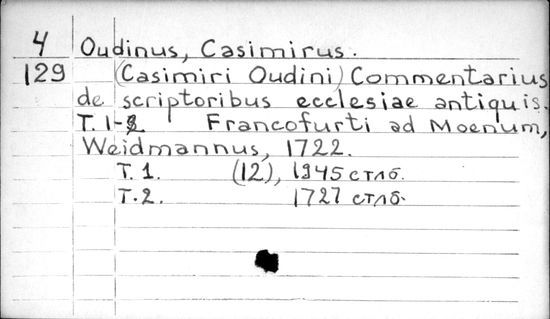 4 Oudinus, Casimirus.
129 (Casimiri Oudini) Commentarius
de scriptoribus ecclesiae antiquis.
T. 1-2 Francofurti ad Moenum,
Weidmannus, 1722.
T. 1. (12), 1945 стлб.
T. 2. 1727 стлб.